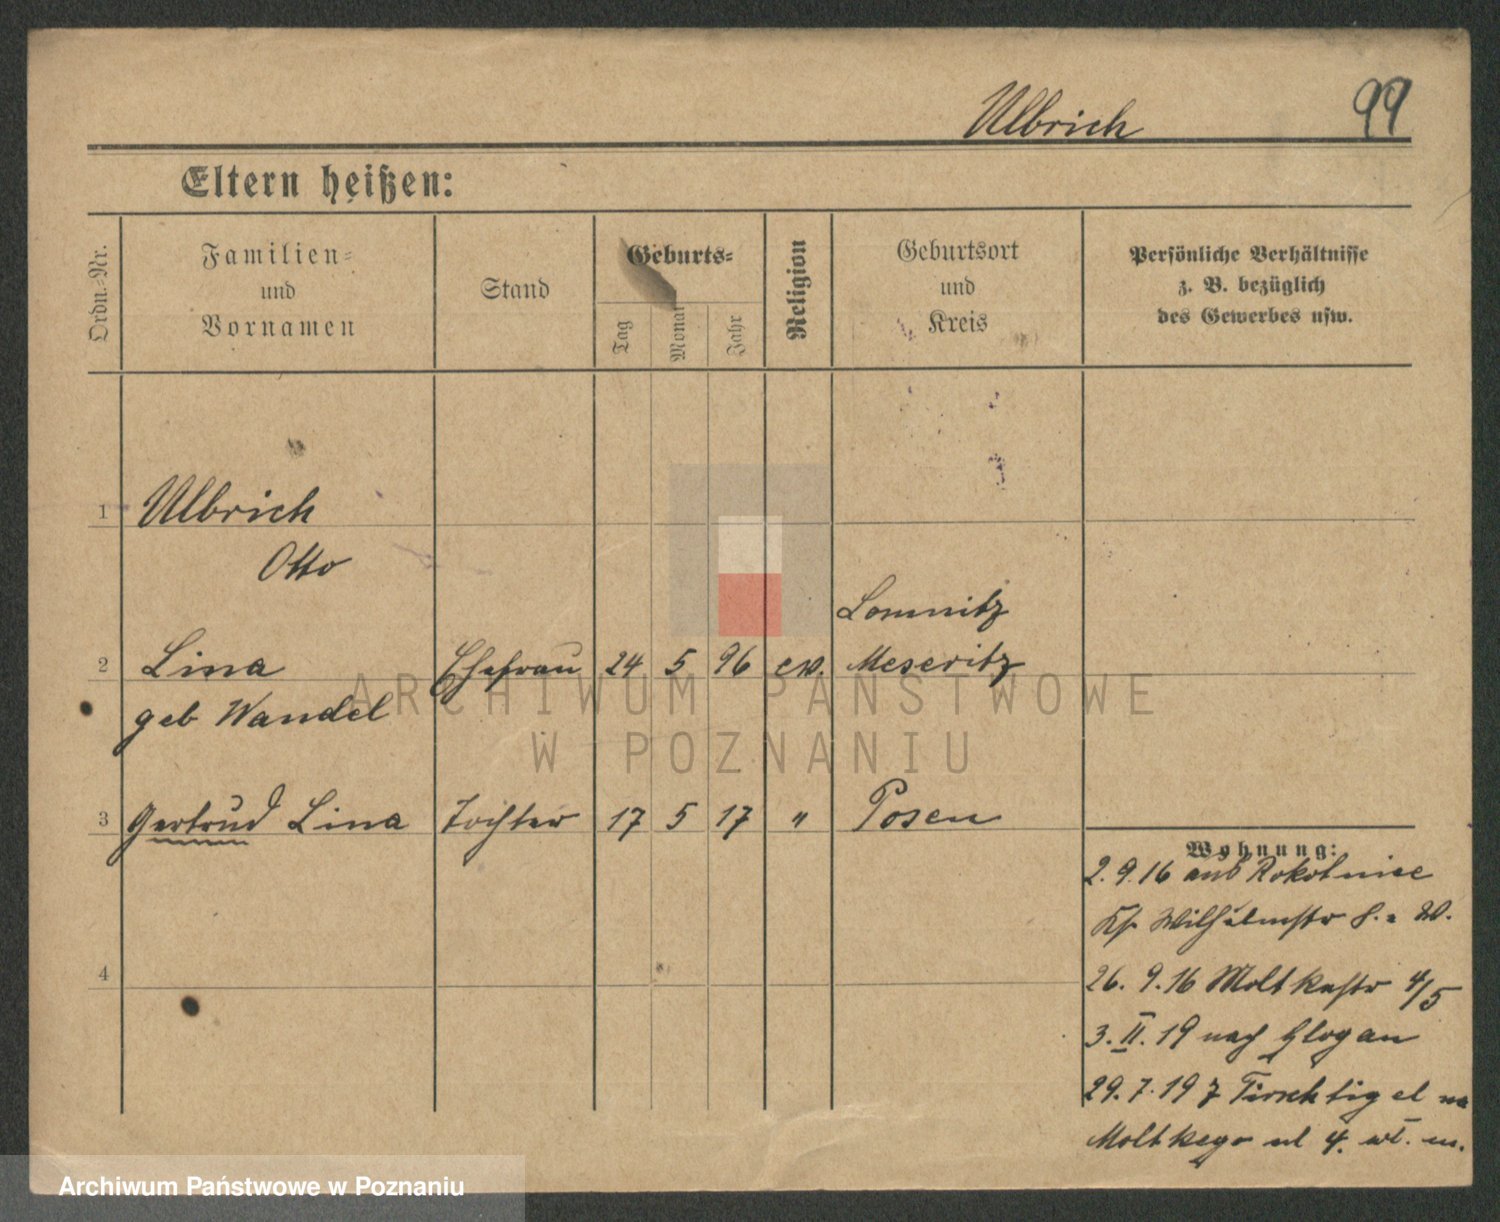 Ulbrich 99
Eltern heißen:
Ordn.-Nr.
Familien-
und
Vornamen
Stand
Geburts-
Tag
Monat
Jahr
Religion
Geburtsort
und
Kreis
Persönliche Verhältnisse
z. B. bezüglich
des Gewerbes usw.
1 Ulbrich
Otto
Lomnitz
2 Lina Ehefrau 24 5 96 ev. Meseritz
geb Wandel
3 Gertrud Lina Tochter 17 5 17 " Posen
Wohnung:
2.9.16 aus Rokotnice
Wilhelmstr 8.
4
26. 9. 16 Moltkestr 4/5
3. II. 19 nach Glogau
29. 7. 19 z Tirschtigel na
Moltkego ul 4. wł. m.
ARCHIWUM PAŃSTWOWE
W POZNANIU
Archiwum Państwowe w Poznaniu